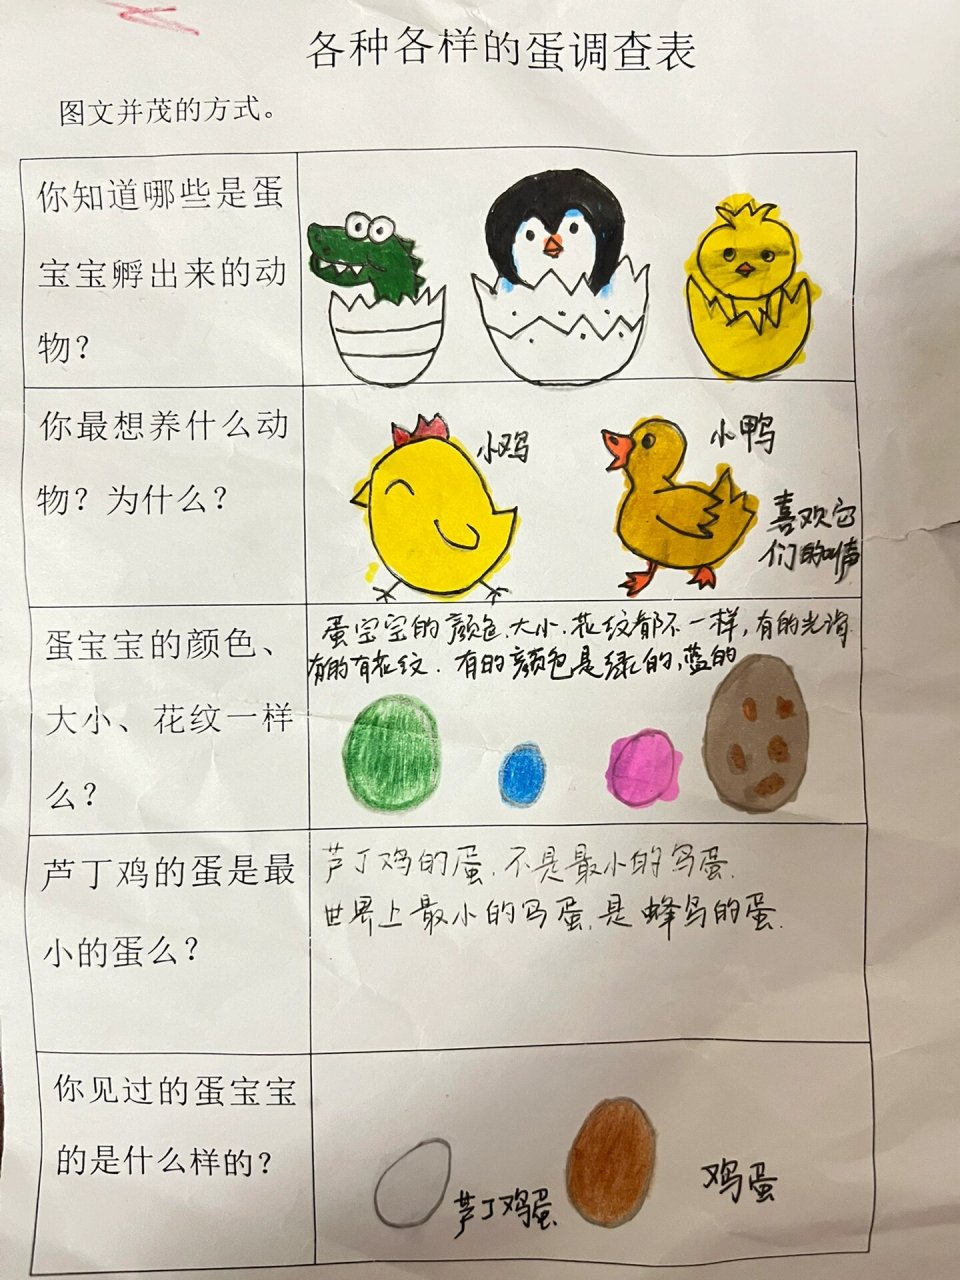 各种各样的蛋调查表
图文并茂的方式。
你知道哪些是蛋
宝宝孵出来的动
物？
你最想养什么动
物？为什么？
小鸡
小鸭
喜欢它
们的叫声
蛋宝宝的颜色、
大小、花纹一样
么？
蛋宝宝的颜色.大小.花纹都不一样，有的光滑
有的有花纹.有的颜色是绿的，蓝的
芦丁鸡的蛋是最
小的蛋么？
芦丁鸡的蛋.不是最小的鸟蛋.
世界上最小的鸟蛋.是蜂鸟的蛋.
你见过的蛋宝宝
的是什么样的？
芦丁鸡蛋.
鸡蛋